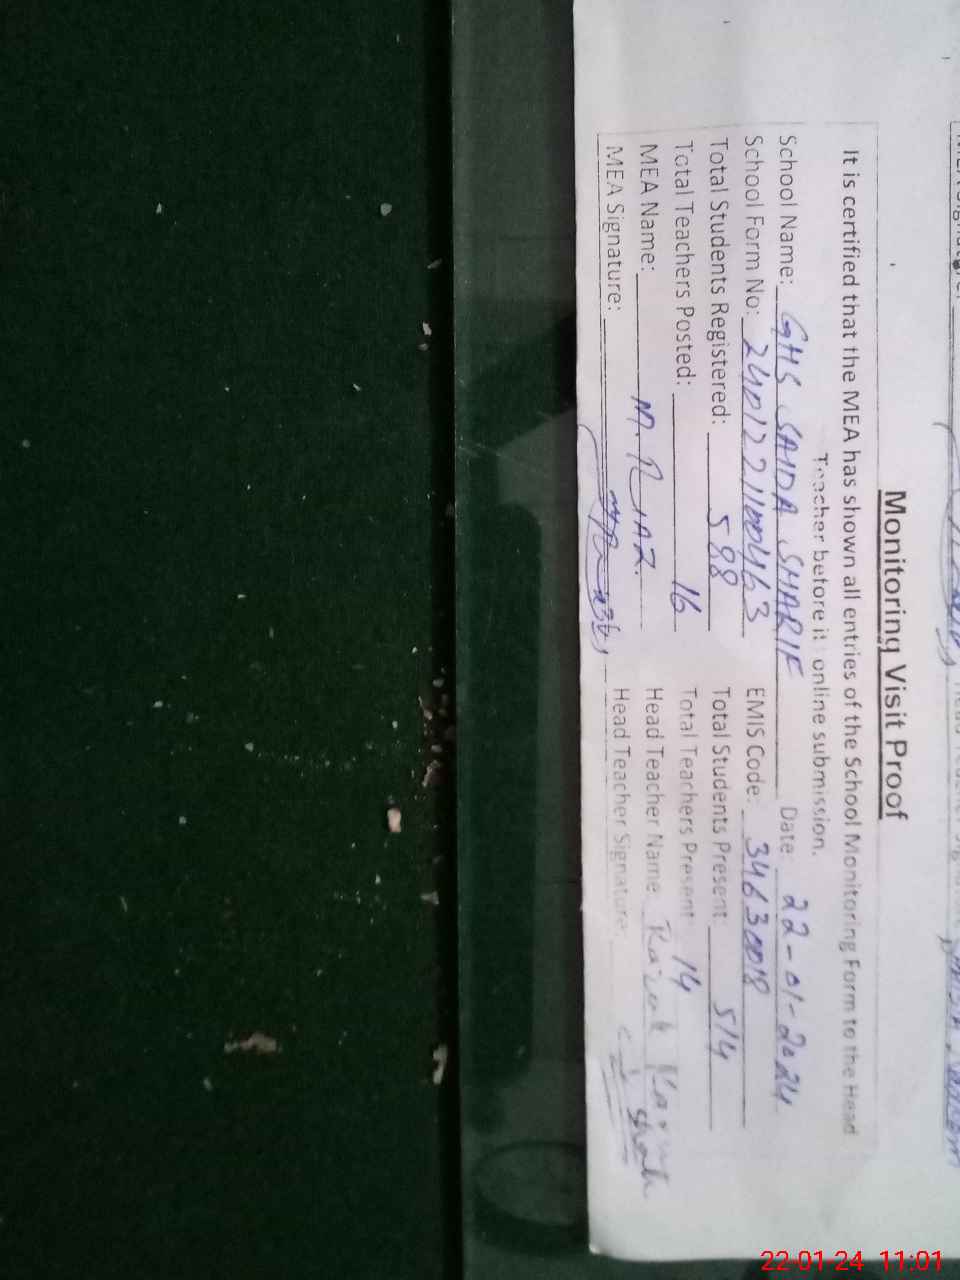 Monitoring Visit Proof
It is certified that the MEA has shown all entries of the School Monitoring Form to the Head
Teacher before it online submission.
School Name: GHS SAIDA SHARIF Date: 22-01-2024
School Form No: 240122110046 3 EMIS Code: 34630018
Total Students Registered: 588 Total Students Present: 514
Total Teachers Posted: 16 Total Teachers Present: 14
MEA Name: M. RIAZ. Head Teacher Name
MEA Signature: Head Teacher Signature:
22-01-24 11:01